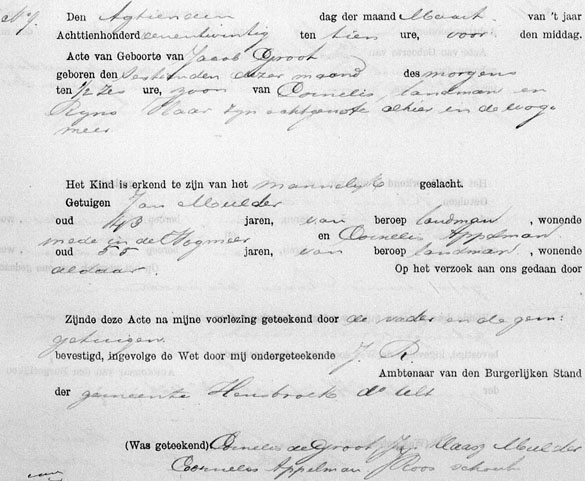 No 7. Den Agtienden dag der maand Maart van 't jaar
Achttienhonderd eenentwintig ten tien ure, voor den middag.
Acte van Geboorte van Jacob Groot
geboren den sestienden dezer maand des morgens
ten 1/2 zes ure, zoon van Cornelis, landman en
Klaar zyn echtgenote alhier en de wog-
meer
Het Kind is erkend te zijn van het mannelyk geslacht.
Getuigen Jan Mulder
oud 43 jaren, van beroep landman, wonende
mede in de Wogmeer en Cornelis Appelman
oud 55 jaren, van beroep landman, wonende
aldaar Op het verzoek aan ons gedaan door
Zijnde deze Acte na mijne voorlezing geteekend door de vader en de gem:
getuigen.
bevestigd, ingevolge de Wet door mij ondergeteekende J. R.
Ambtenaar van den Burgerlijken Stand
der gemeente Hensbroek
(Was geteekend) Cornelis de Groot Jan Klaasz Mulder
Cornelis Appelman J Roos schout